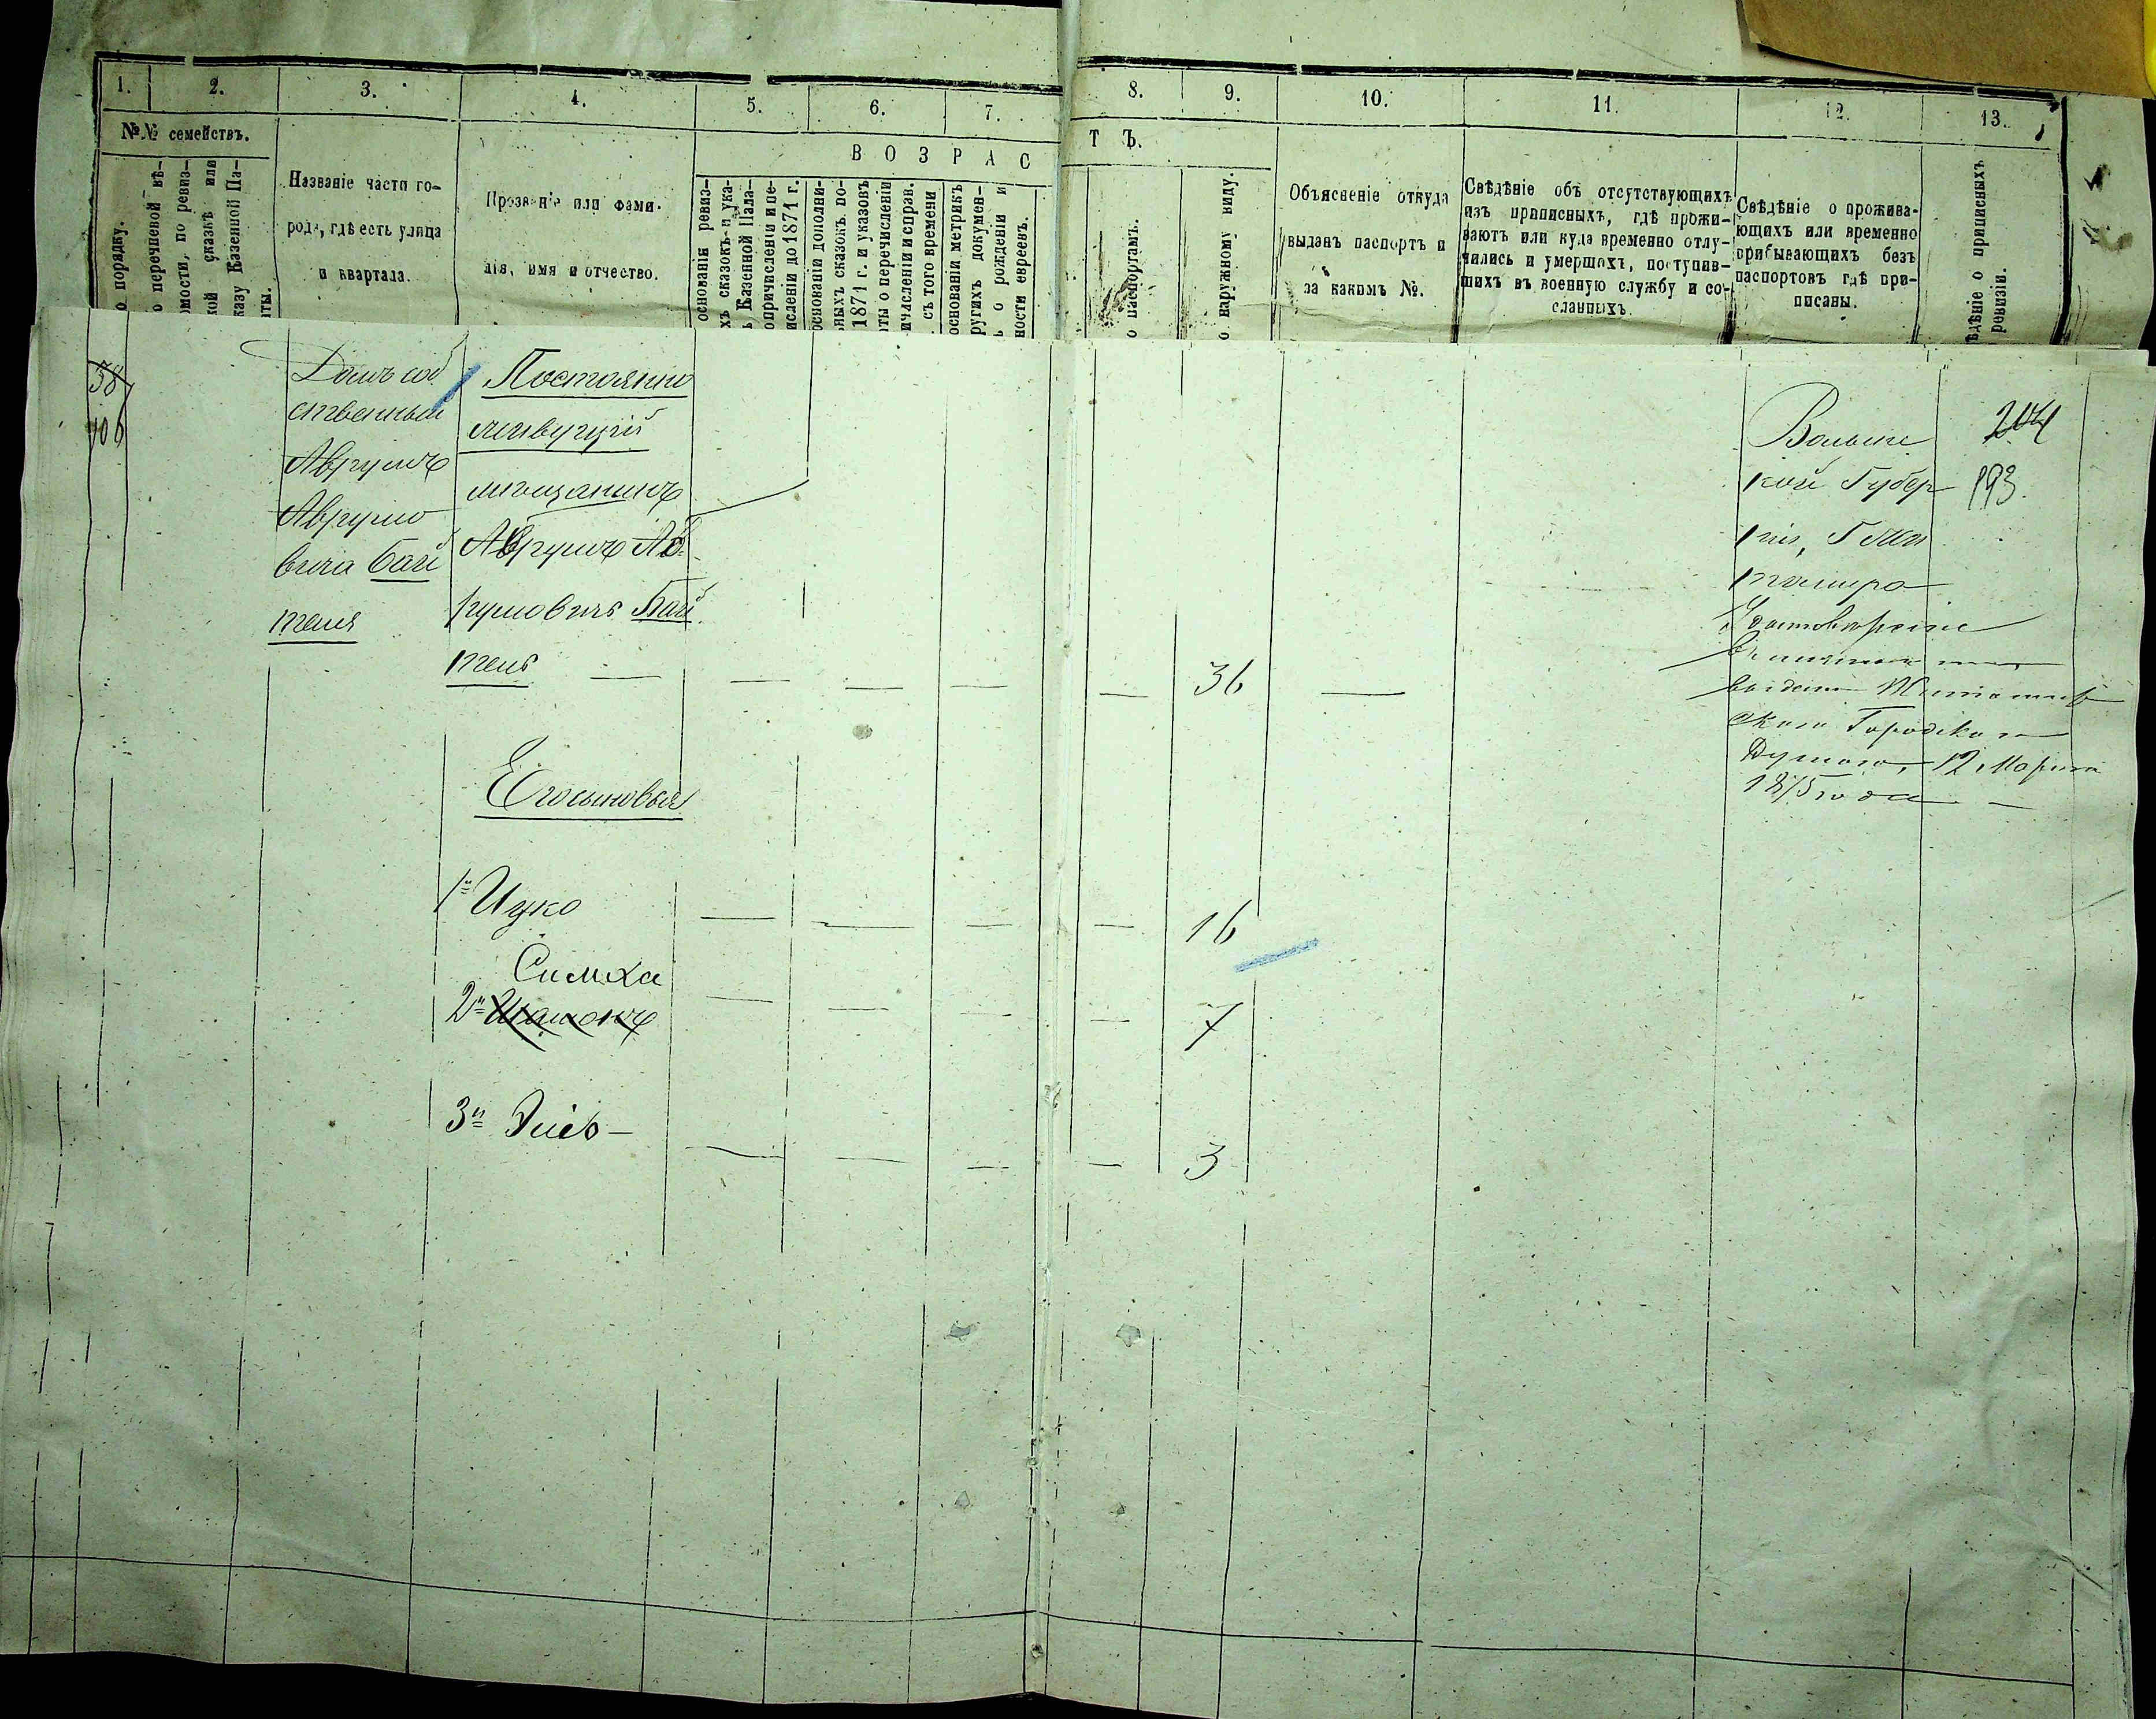 1. 2. 3. 4. 5. 6. 7. 8. 9. 10. 11. 12. 13.
№№ семействъ.
В О З Р А С Т Ъ.
о порядку.
о перечневой вѣ-
омости, по ревиз-
кой сказкѣ или
казу Казенной Па-
аты.
Названіе части го-
рода, гдѣ есть улица
и квартала.
Прозваніе или фами-
лія, имя и отчество.
основаніи ревиз-
хъ сказокъ и ука-
ъ Казенной Пала-
опричисленіи и пе-
исленіи до 1871 г.
основаніи дополни-
ныхъ сказокъ по-
1871 г. и указовъ
ты о перечисленіи
ичисленіи и справ.
съ того времени
основаніи метрикъ
ругихъ докумен-
ъ о рожденіи и
ности евреевъ.
о паспортамъ.
о наружному виду.
Объясненіе откуда
выданъ паспортъ и
за какимъ №.
Свѣдѣніе объ отсутствующихъ
изъ приписныхъ, гдѣ прожи-
ваютъ или куда временно отлу-
чились и умершихъ, поступив-
шихъ въ военную службу и со-
сланныхъ.
Свѣдѣніе о прожива-
ющихъ или временно
прибывающихъ безъ
паспортовъ гдѣ при-
писаны.
ѣдѣніе о приписныхъ
ревизіи.
58
106
Домъ соб
ственный
Аврумъ
Аврумо
вича Бай
теля
Постоянно
живущій
мѣщанинъ
Аврумъ Ав-
румовичъ Бай
тель
36
Его сыновья
1й Ицко
16
Симха
2й Шамонъ
7
3й
3
Волынс
кой Губер
ніи, Г Жи
томира
Удостовѣреніе
выдано Житомир
скою Городскою
Думою, 12 Марта
1875 года
204
193.